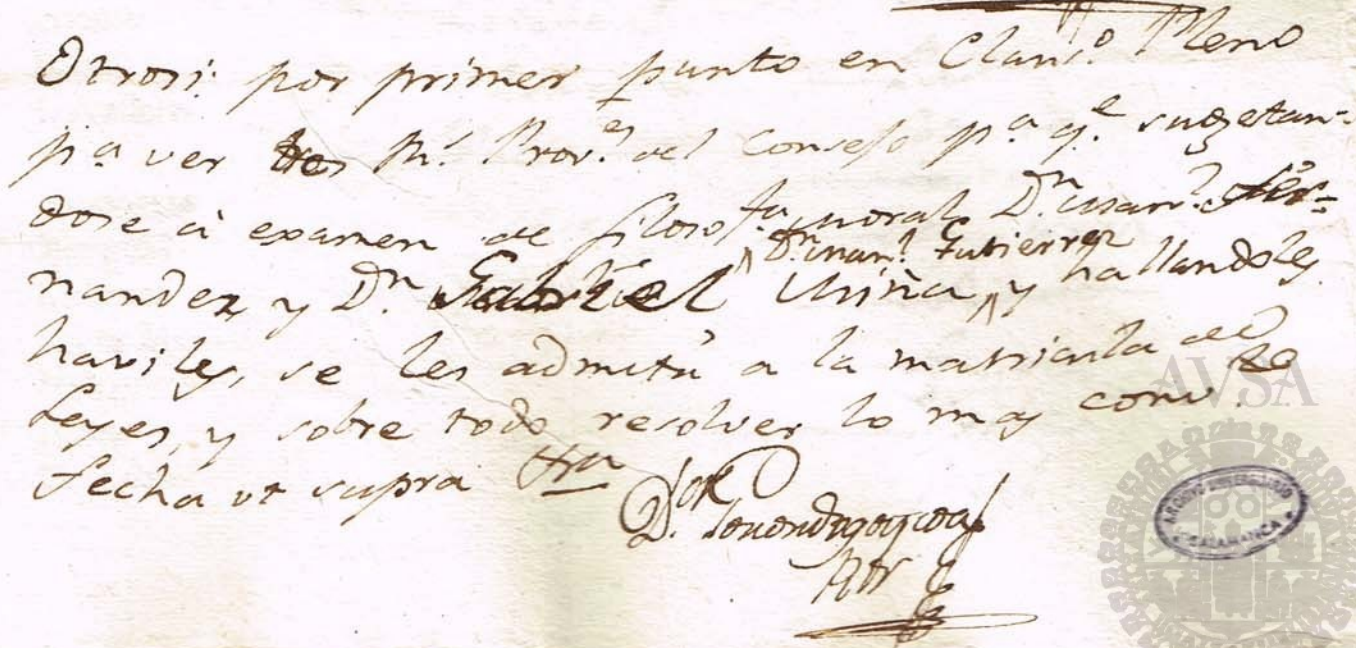 Otrosi: por primer punto en Claus.º Pleno
p.ª ver tres R.s Prov.es del Consejo p.ª q.e sugetan=
dose à examen de filosof.ia moral D.n Man.l Fer=
nandez, y D.n Gabriel Uziña, y hallandoles
D.n Man.l Gutierrez
haviles, se les admita a la matricula de
Leyes, y sobre todo resolver lo mas conv.te
fecha ut supra
D.or
Rtr
AVSA
ARCHIVO UNIVERSITARIO
SALAMANCA